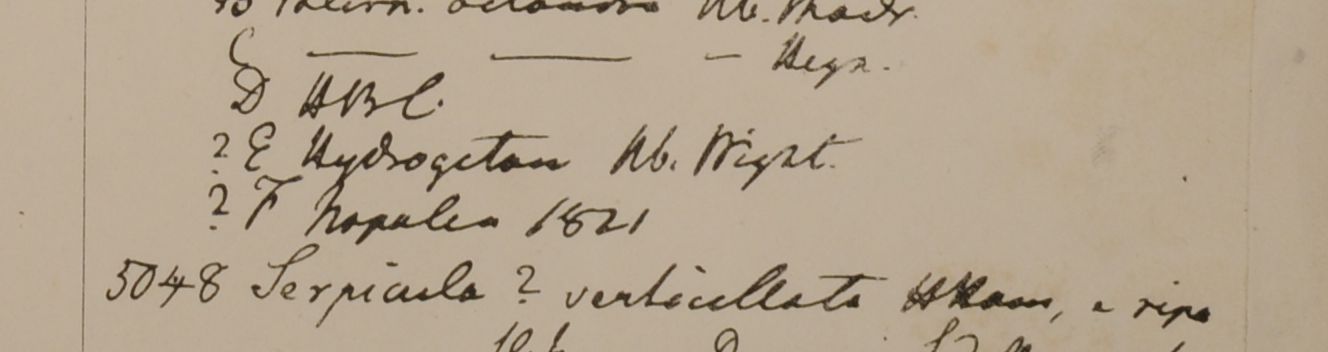 B Hb. Madr.
C — — — Heyn.
D HBC.
? E Hydrogeton Hb. Wight.
? F Napalea 1821
5048 Serpicula ? verticillata HHam, e ripa